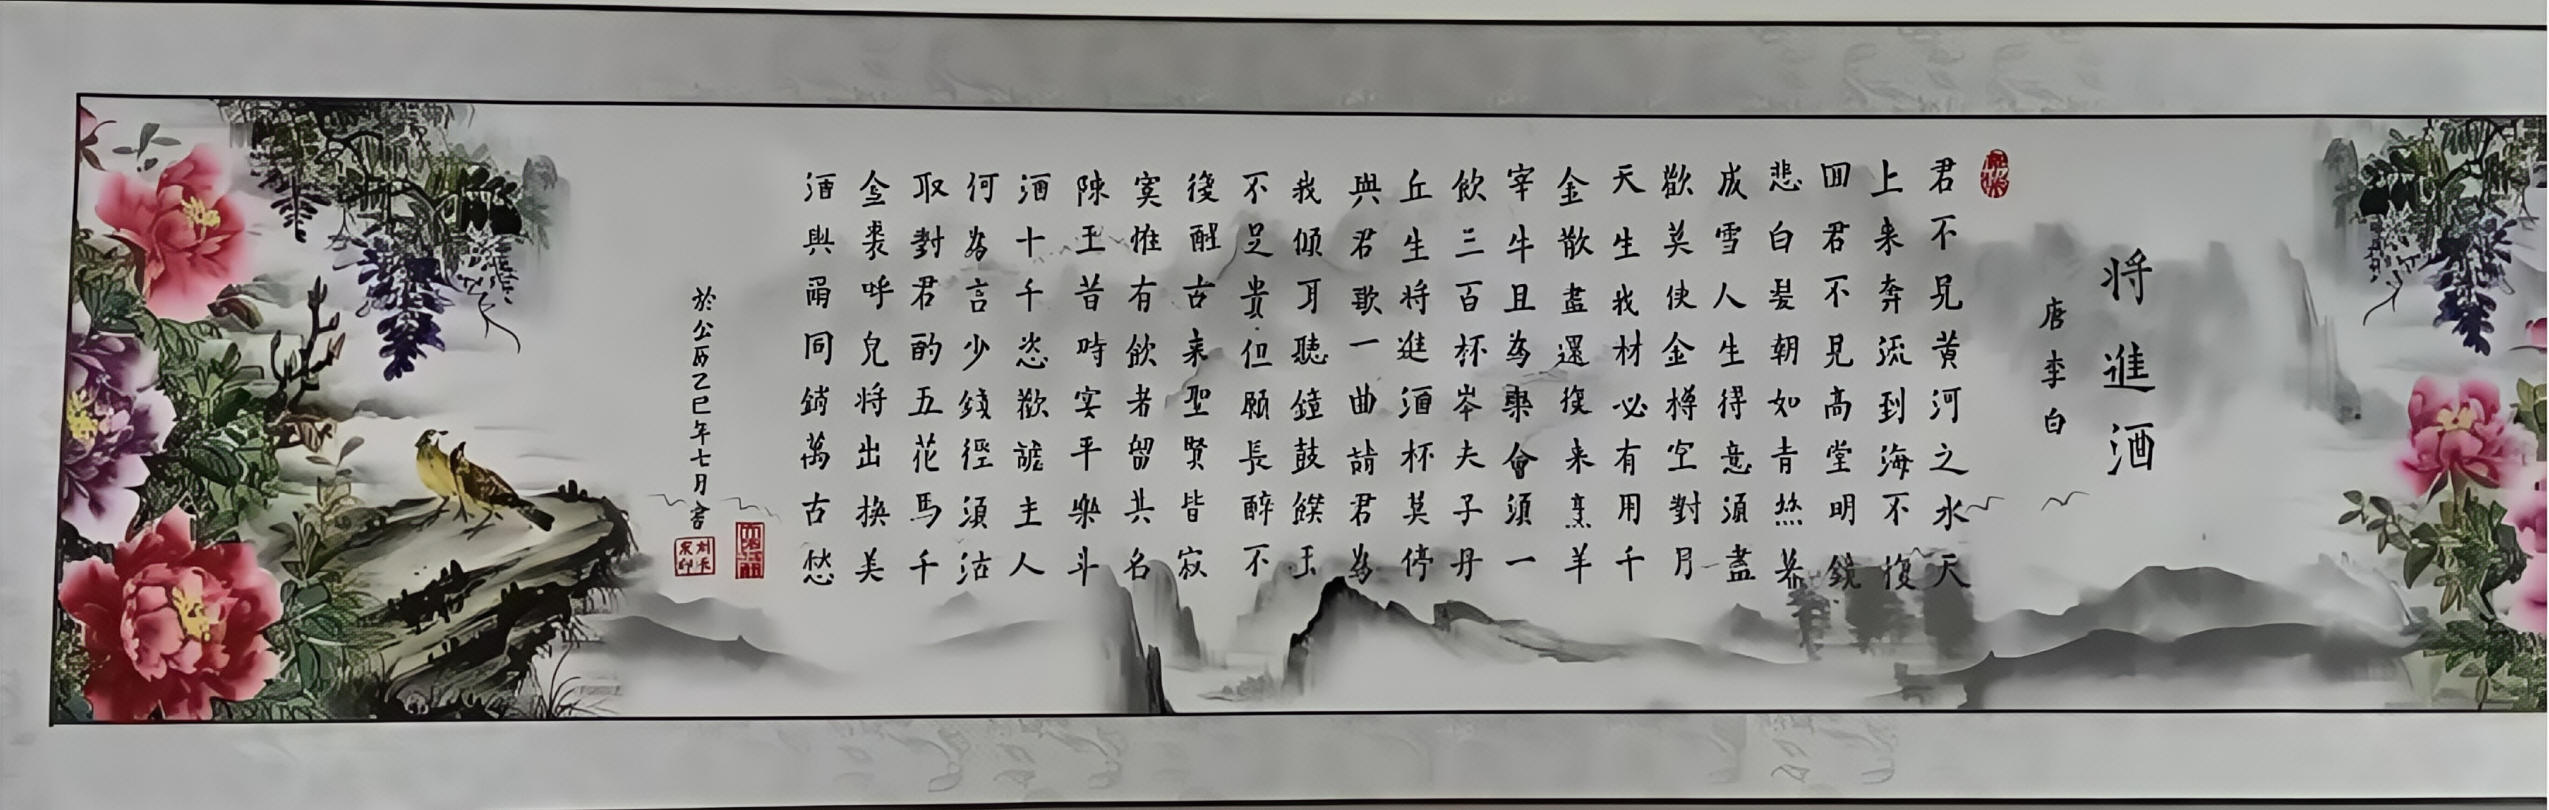 将進酒
唐李白
君不見黄河之水天
上来奔流到海不復
回君不見高堂明鏡
悲白髮朝如青絲暮
成雪人生得意須盡
歡莫使金樽空對月
天生我材必有用千
金散盡還復来烹羊
宰牛且為樂會須一
飲三百杯岑夫子丹
丘生将進酒杯莫停
與君歌一曲請君為
我傾耳聽鐘鼓饌玉
不足貴但願長醉不
復醒古来聖賢皆寂
寞惟有飲者留其名
陳王昔時宴平樂斗
酒十千恣歡謔主人
何為言少錢徑須沽
取對君酌五花馬千
金裘呼兒将出換美
酒與爾同銷萬古愁
於公历乙巳年七月書